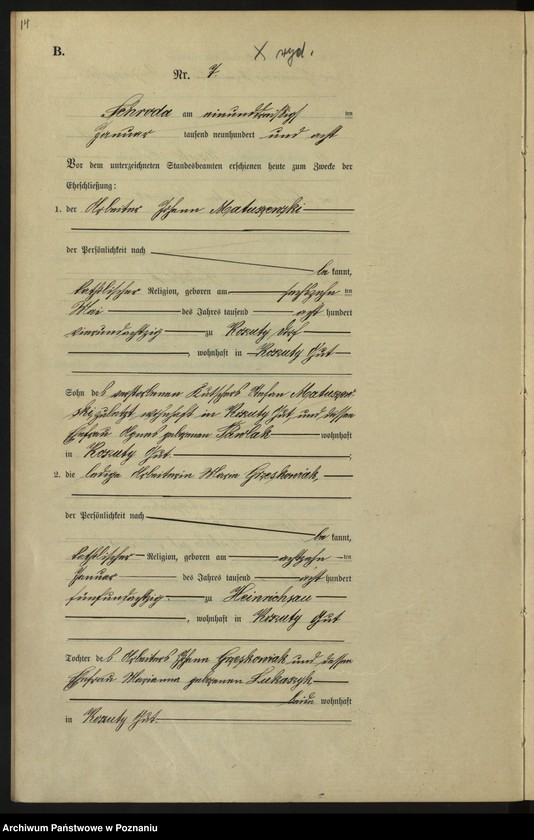 14
B.
X wyd.
Nr. 7
Schroda am einunddreißigsten
Januar tausend neunhundert und acht
Vor dem unterzeichneten Standesbeamten erschienen heute zum Zwecke der
Eheschließung:
1. der Arbeiter Johann Matuszewski
der Persönlichkeit nach
bekannt,
katholischer Religion, geboren am sechszehn ten
Mai des Jahres tausend acht hundert
vierundachtzig zu Koszuty Dorf
, wohnhaft in Koszuty Gut
Sohn des verstorbenen Kutschers Stefan Matuszew-
ski zuletzt wohnhaft in Koszuty Gut und dessen
Ehefrau Agnes geborenen Pawlak wohnhaft
in Koszuty Gut.;
2. die ledige Arbeiterin Maria Grześkowiak,
der Persönlichkeit nach
bekannt,
katholischer Religion, geboren am achtzehn ten
Januar des Jahres tausend acht hundert
fünfundachtzig zu Heinrichsau
, wohnhaft in Koszuty Gut
Tochter des Arbeiters Johann Grześkowiak und dessen
Ehefrau Marianna geborenen Lukaszyk
beide wohnhaft
in Koszuty Gut.
Archiwum Państwowe w Poznaniu